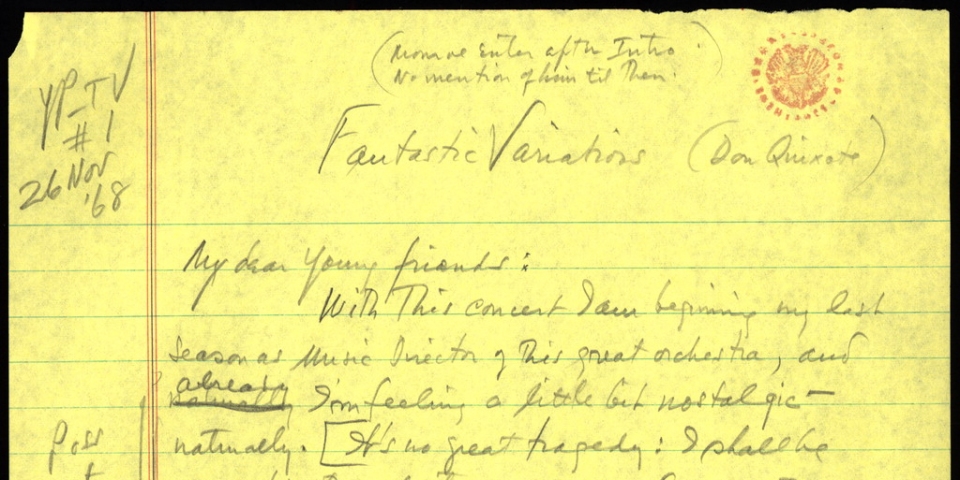 (Monroe Enter after Intro
No mention of him til Then.)
YP-TV
#1
26 Nov
'68
Fantastic Variations (Don Quixote)
My dear Young friends:
With This concert I am beginning my last
season as Music Director of This great orchestra, and
already
naturally I'm feeling a little bit nostalgic —
naturally. [It's no great tragedy: I shall be
Poss